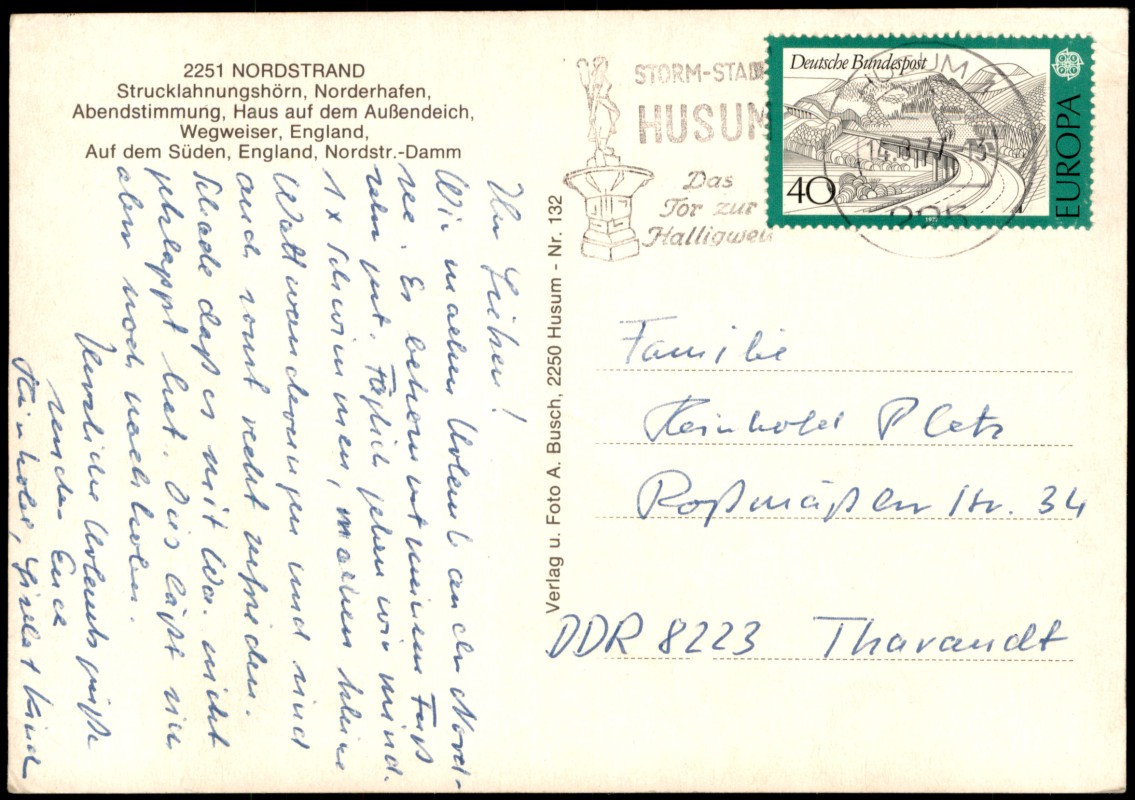 2251 NORDSTRAND
Strucklahnungshörn, Norderhafen,
Abendstimmung, Haus auf dem Außendeich,
Wegweiser, England,
Auf dem Süden, England, Nordstr.-Damm
Ihr Lieben!
Wir machen Urlaub an der Nord-
see. Es bekommt meinem Fuß
sehr gut. Täglich gehen wir mind.
1x schwimmen, machen kleine
Wattwanderungen und sind
auch sonst recht zufrieden.
Schade daß es mit Wa. nicht
geklappt hat. Dies läßt sich
aber noch nachholen.
Herzliche Urlaubsgrüße
senden Euch
Reinhold, Gisela + Kinder
Verlag u. Foto A. Busch, 2250 Husum - Nr. 132
STORM-STADT
HUSUM
Das
Tor zur
Halligwelt
Deutsche Bundespost
40
EUROPA
1977
HUSUM
225
Familie
Reinhold Platz
Roßmäßler Str. 34
DDR 8223 Tharandt